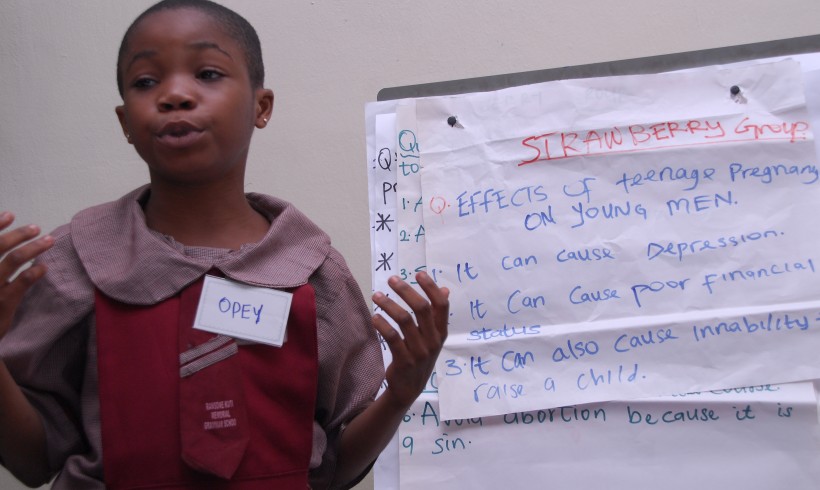 OPEY
RANSOME KUTI
MEMORIAL
GRAMMAR SCHOOL
STRAWBERRY Group
Q. EFFECTS of teenage Pregnancy
ON YOUNG MEN.
1. It can cause Depression.
It Can Cause poor financial
status
3. It can also cause innability
raise a child.
6. Avoid abortion because it is
a sin.
Q
to
1. A
2. A
3. S
Q
*
*